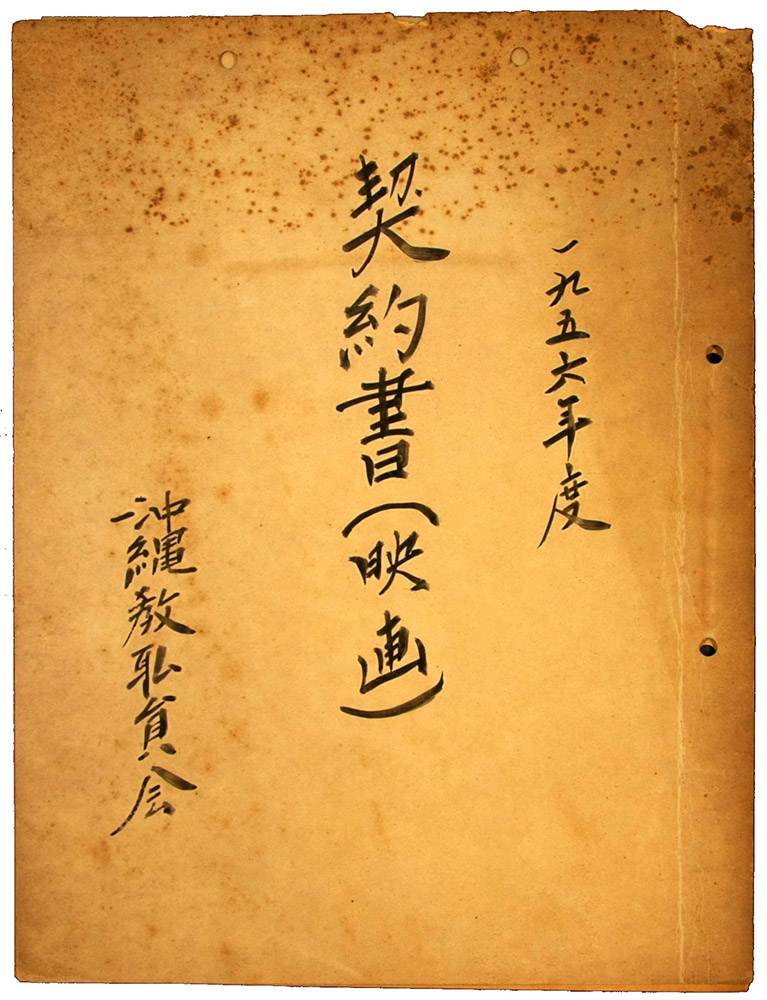 一九五六年度
契約書(映画)
沖縄教職員会